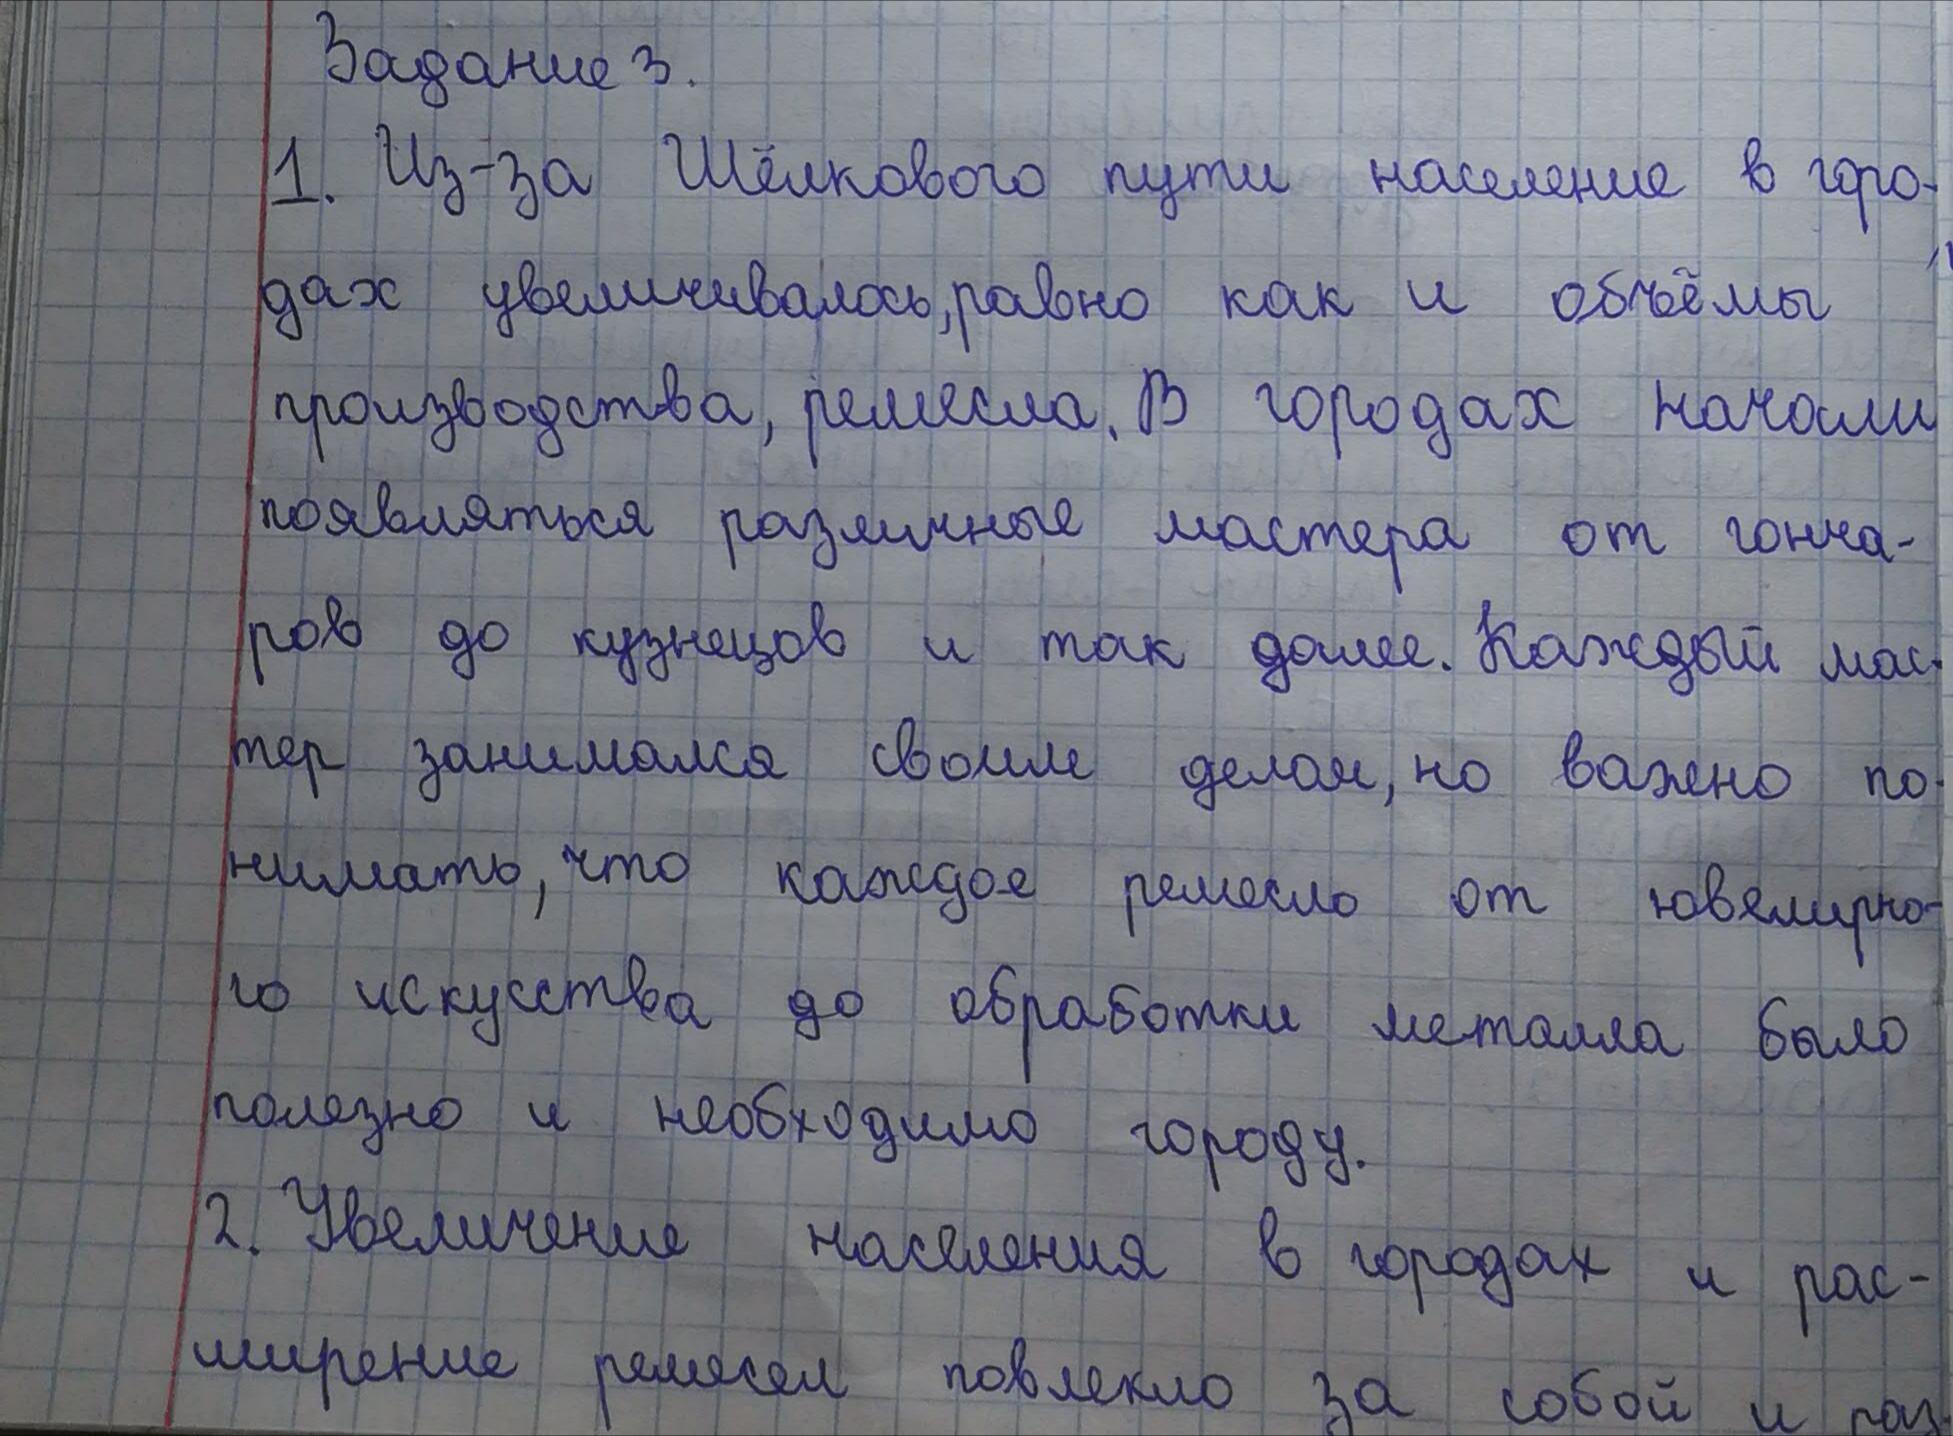 Задание 3.
1. Из-за Шёлкового пути население в горо-
дах увеличивалось, равно как и объёмы
производства, ремесла. В городах начали
появляться различные мастера от гонча-
ров до кузнецов и так далее. Каждый мас-
тер занимался своим делом, но важно по-
нимать, что каждое ремесло от ювелирно-
го искусства до обработки металла было
полезно и необходимо городу.
2. Увеличение населения в городах и рас-
ширение ремесел повлекло за собой и раз-